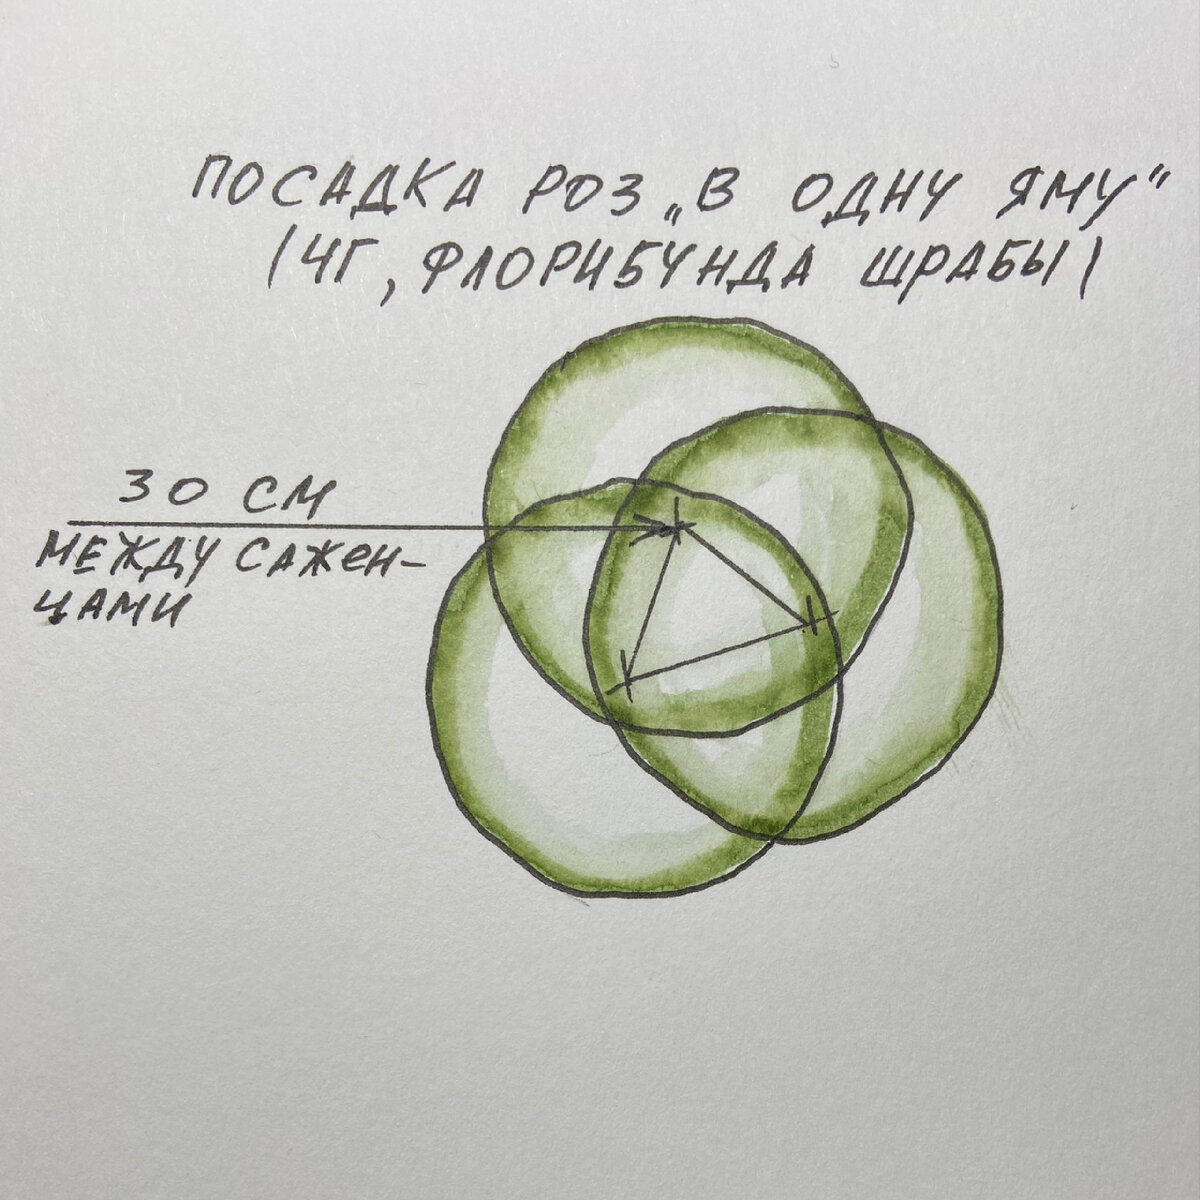 ПОСАДКА РОЗ „В ОДНУ ЯМУ“
(ЧГ, ФЛОРИБУНДА ШРАБЫ)
30 СМ
МЕЖДУ САЖЕН-
ЦАМИ